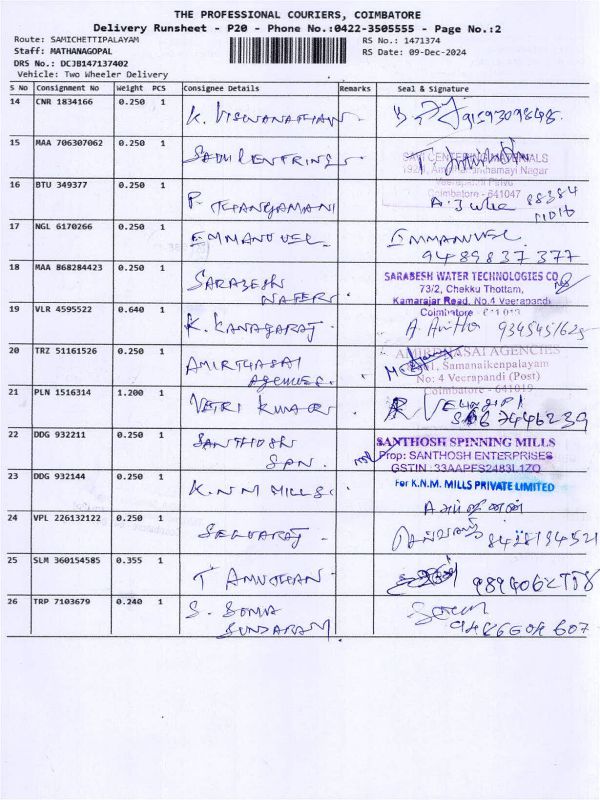 THE PROFESSIONAL COURIERS, COIMBATORE
Delivery Runsheet - P20 - Phone No.:0422-3505555 - Page No.:2
Route: SAMICHETTIPALAYAM
RS No.: 1471374
Staff: MATHANAGOPAL
RS Date: 09-Dec-2024
DRS No.: DCJB147137402
Vehicle: Two Wheeler Delivery
S No Consignment No Weight PCS Consignee Details Remarks Seal & Signature
14 CNR 1834166 0.250 1 K. VISWANATHAN
15 MAA 706307062 0.250 1
SAKI CENTERING MATERIALS
Coimbatore - 641047
16 BTU 349377 0.250 1 P. THANGAMANI
17 NGL 6170266 0.250 1 EMMANUVEL EMMANUVEL
9489837377
18 MAA 868284423 0.250 1 SARABESH WATERS
SARABESH WATER TECHNOLOGIES CO
73/2, Chekku Thottam,
Kamarajar Road, No.4 Veerapandi
Coimbatore - 641 019
19 VLR 4595522 0.640 1 K. KANAGARAJ
20 TRZ 51161526 0.250 1 AMIRTHASAI
AGENCIES
AMIRTHASAI AGENCIES
Samanaikenpalayam
No: 4 Veerapandi (Post)
Coimbatore - 641019
21 PLN 1516314 1.200 1 VETRI KUMAR
22 DDG 932211 0.250 1 SANTHOSH
SPN.
SANTHOSH SPINNING MILLS
Prop: SANTHOSH ENTERPRISES
GSTIN : 33AAPFS2483L1ZQ
23 DDG 932144 0.250 1 K.N.M MILLS.
For K.N.M. MILLS PRIVATE LIMITED
24 VPL 226132122 0.250 1 SELVARAJ
செல்வராஜ் 8428194521
25 SLM 360154585 0.355 1 T AMUTHAN
26 TRP 7103679 0.240 1 S. SOMA
SUNDARAM